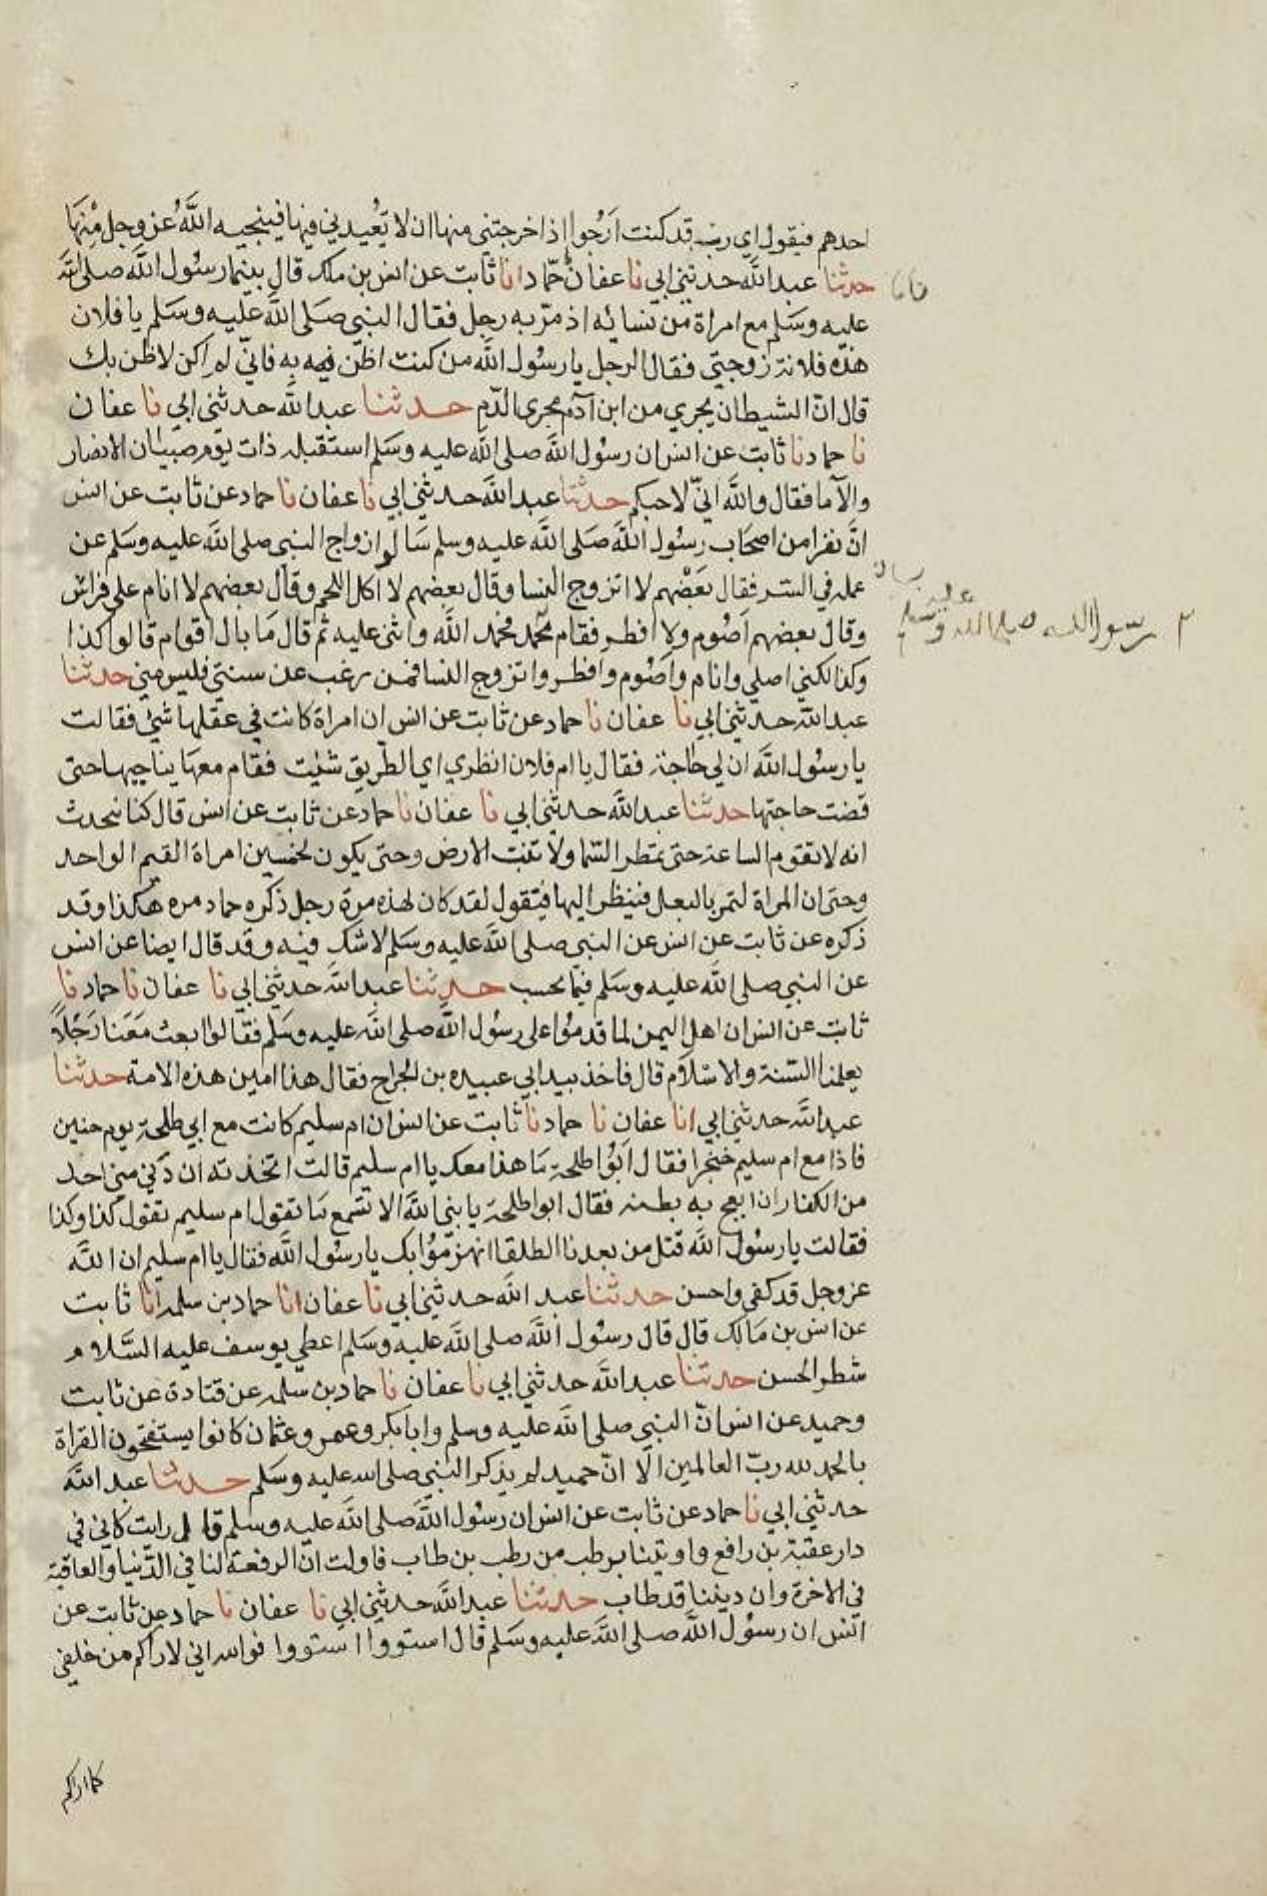 احدهم فيقول اي رب قد كنت ارجوا اذا اخرجتني منها ان لا تعيدني فيها فينجيه الله عز وجل منها
حدثنا عبد الله حدثني ابي نا عفان حماد انا ثابت عن انس بن ملك قال بينما رسول الله صلى الله
عليه وسلم مع امراة من نسائه اذ مر به رجل فقال النبي صلى الله عليه وسلم يا فلان
هذه فلانة زوجتي فقال الرجل يا رسول الله من كنت اظن فيه به فاني لم اكن لاظن بك
قال ان الشيطان يجري من ابن آدم مجرى الدم حدثنا عبد الله حدثني ابي نا عفان
نا حماد نا ثابت عن انس ان رسول الله صلى الله عليه وسلم استقبله ذات يوم صبيان الانصار
والآما فقال والله اني لاحبكم حدثنا عبد الله حدثني ابي نا عفان نا حماد عن ثابت عن انس
ان نفرا من اصحاب رسول الله صلى الله عليه وسلم سالوا ازواج النبي صلى الله عليه وسلم عن
عمله في الستر فقال بعضهم لا اتزوج النسا وقال بعضهم لا اكل اللحم وقال بعضهم لا انام على فراش
٢ رسول الله صلى الله عليه وسلم
وقال بعضهم اصوم ولا افطر فقام محمد الله واثنى عليه ثم قال ما بال اقوام قالوا كذا
وكذا لكني اصلي وانام واصوم وافطر واتزوج النسا فمن رغب عن سنتي فليس مني حدثنا
عبد الله حدثني ابي نا عفان نا حماد عن ثابت عن انس ان امراة كانت في عقلها شئ فقالت
يا رسول الله ان لي حاجة فقال يا ام فلان انظري اي الطريق شئت فقام معها يناجيها حتى
قضت حاجتها حدثنا عبد الله حدثني ابي نا عفان نا حماد عن ثابت عن انس قال كنا نتحدث
انه لا تقوم الساعة حتى تمطر السما ولا تنبت الارض وحتى يكون لخمسين امراة القيم الواحد
وحتى ان المراة لتمر بالبعل فينظر اليها فيقول لقد كان لهذه مرة رجل ذكره حماد مره هكذا وقد
ذكره عن ثابت عن انس عن النبي صلى الله عليه وسلم لا شك فيه وقد قال ايضا عن انس
عن النبي صلى الله عليه وسلم فيما يحسب حدثنا عبد الله حدثني ابي نا عفان نا حماد نا
ثابت عن انس ان اهل اليمن لما قدموا على رسول الله صلى الله عليه وسلم فقالوا ابعث معنا رجلا
يعلمنا السنة والاسلام قال فاخذ بيد ابي عبيده بن الجراح فقال هذا امين هذه الامة حدثنا
عبد الله حدثني ابي انا عفان نا حماد نا ثابت عن انس ان ام سليم كانت مع ابي طلحة يوم حنين
فاذا مع ام سليم خنجرا فقال ابوا طلحة ما هذا معك يا ام سليم قالت اتخذته ان دنى مني احد
من الكفار ان ابعج به بطنه فقال ابوا طلحة يا نبي الله الا تسمع ما تقول ام سليم تقول كذا وكذا
فقالت يا رسول الله قتل من بعدنا الطلقا انهزموا بك يا رسول الله فقال يا ام سليم ان الله
عز وجل قد كفى واحسن حدثنا عبد الله حدثني ابي نا عفان انا حماد بن سلمه انا ثابت
عن انس بن مالك قال قال رسول الله صلى الله عليه وسلم اعطي يوسف عليه السلام
شطر الحسن حدثنا عبد الله حدثني ابي نا عفان نا حماد بن سلمه عن قتادة عن ثابت
وحميد عن انس ان النبي صلى الله عليه وسلم وابا بكر وعمر وعثمان كانوا يستفتحون القراة
بالحمد لله رب العالمين الا ان حميد لم يذكر النبي صلى الله عليه وسلم حدثنا عبد الله
حدثني ابي نا حماد عن ثابت عن انس ان رسول الله صلى الله عليه وسلم قال رايت كاني في
دار عقبة بن رافع واوتينا برطب من رطب بن طاب فاولت ان الرفعة لنا في الدنيا والعاقبة
في الاخرة وان ديننا قد طاب حدثنا عبد الله حدثني ابي نا عفان نا حماد عن ثابت عن
انس ان رسول الله صلى الله عليه وسلم قال استووا استووا فوالله اني لاراكم من خلفي
كما اراكم